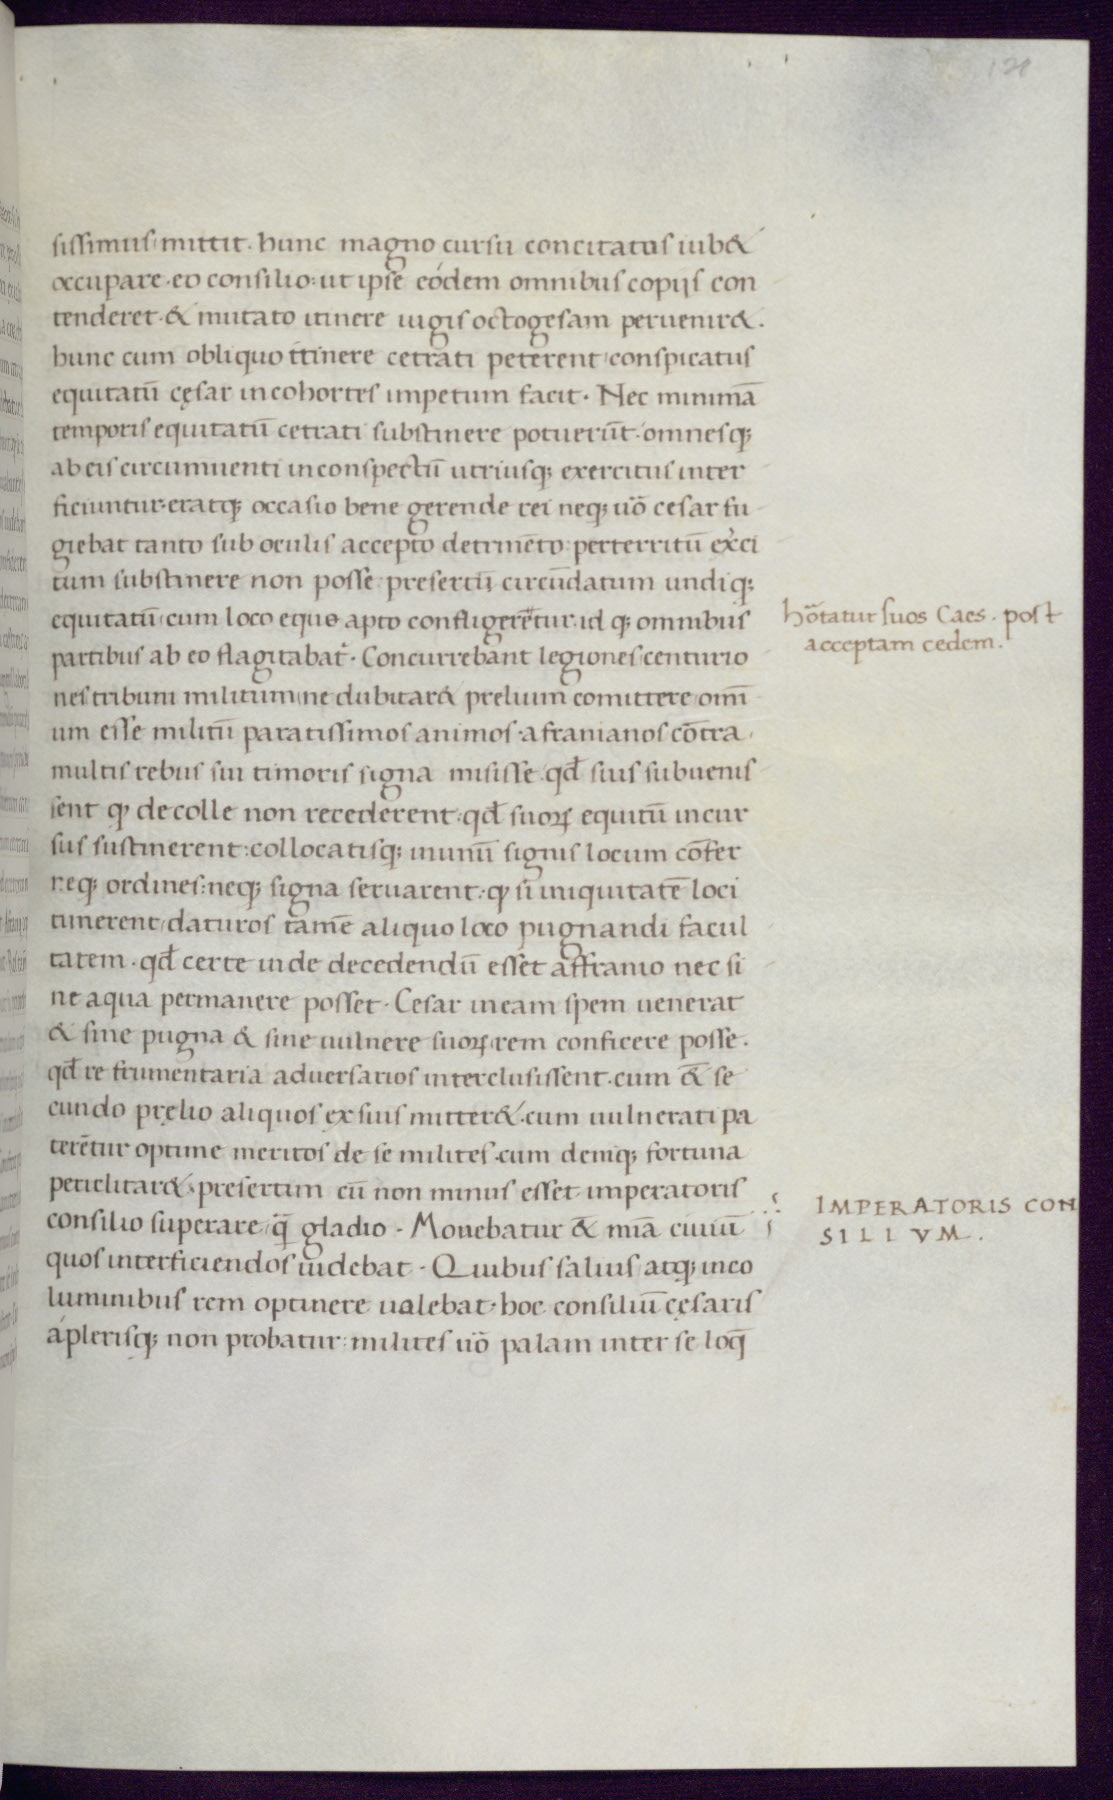 120
sissimus mittit. hunc magno cursu concitatos iub&
occupare. eo consilio: ut ipse eodem omnibus copijs con
tenderet. & mutato itinere iugis octogesam peruenir&.
hunc cum obliquo itinere cetrati peterent conspicatus
equitatū cęsar in cohortes impetum facit. Nec minimā
temporis equitatū cetrati substinere potuerūt. omnesq;
ab eis circumuenti in conspectū utriusq; exercitus inter
ficiuntur. eratq; occasio bene gerende rei neq; uō cesar fu
giebat tanto sub oculis accepto detrimēto perterritū exerci
tum substinere non posse presertī circūdatum undiq;
equitatū cum loco equo apto confligerētur. id q; omnibus
partibus ab eo flagitabat᷑. Concurrebant legiones centurio
nes tribuni militum ne dubitar& prelium comittere omī
um esse militū paratissimos animos. afranianos cōtra
multis rebus sui timoris signa misisse qđ suis subuenis
sent qꝫ de colle non recederent. qđ suoꝝ equitū incur
sus sustinerent: collocatisq; in unū signis locum cōfer
neq; ordines: neq; signa seruarent. qꝫ si iniquitatē loci
timerent daturos tamē aliquo loco pugnandi facul
tatem. qđ certe inde decedendū esset affranio nec si
ne aqua permanere posset. Cesar in eam spem uenerat
& sine pugna & sine uulnere suoꝝ rem conficere posse.
qđ re frumentaria aduersarios interclusissent. cum &̄ se
cundo pręlio aliquos ex suis mitter&. cum uulnerati pa
terētur optime meritos de se milites. cum deniq; fortuna
periclitar&. presertim cū non minus esset imperatoris
consilio superare q̄ gladio. Mouebatur &̄ mīa ciuiū
quos interficiendos uidebat. Quibus saluis atq; inco
luminibus rem optinere ualebat. hoc consiliū cęsaris
a plerisq; non probatur: milites uō palam inter se loq̄
hōtatur suos Caes. post
acceptam cedem.
IMPERATORIS CON
SILIVM.